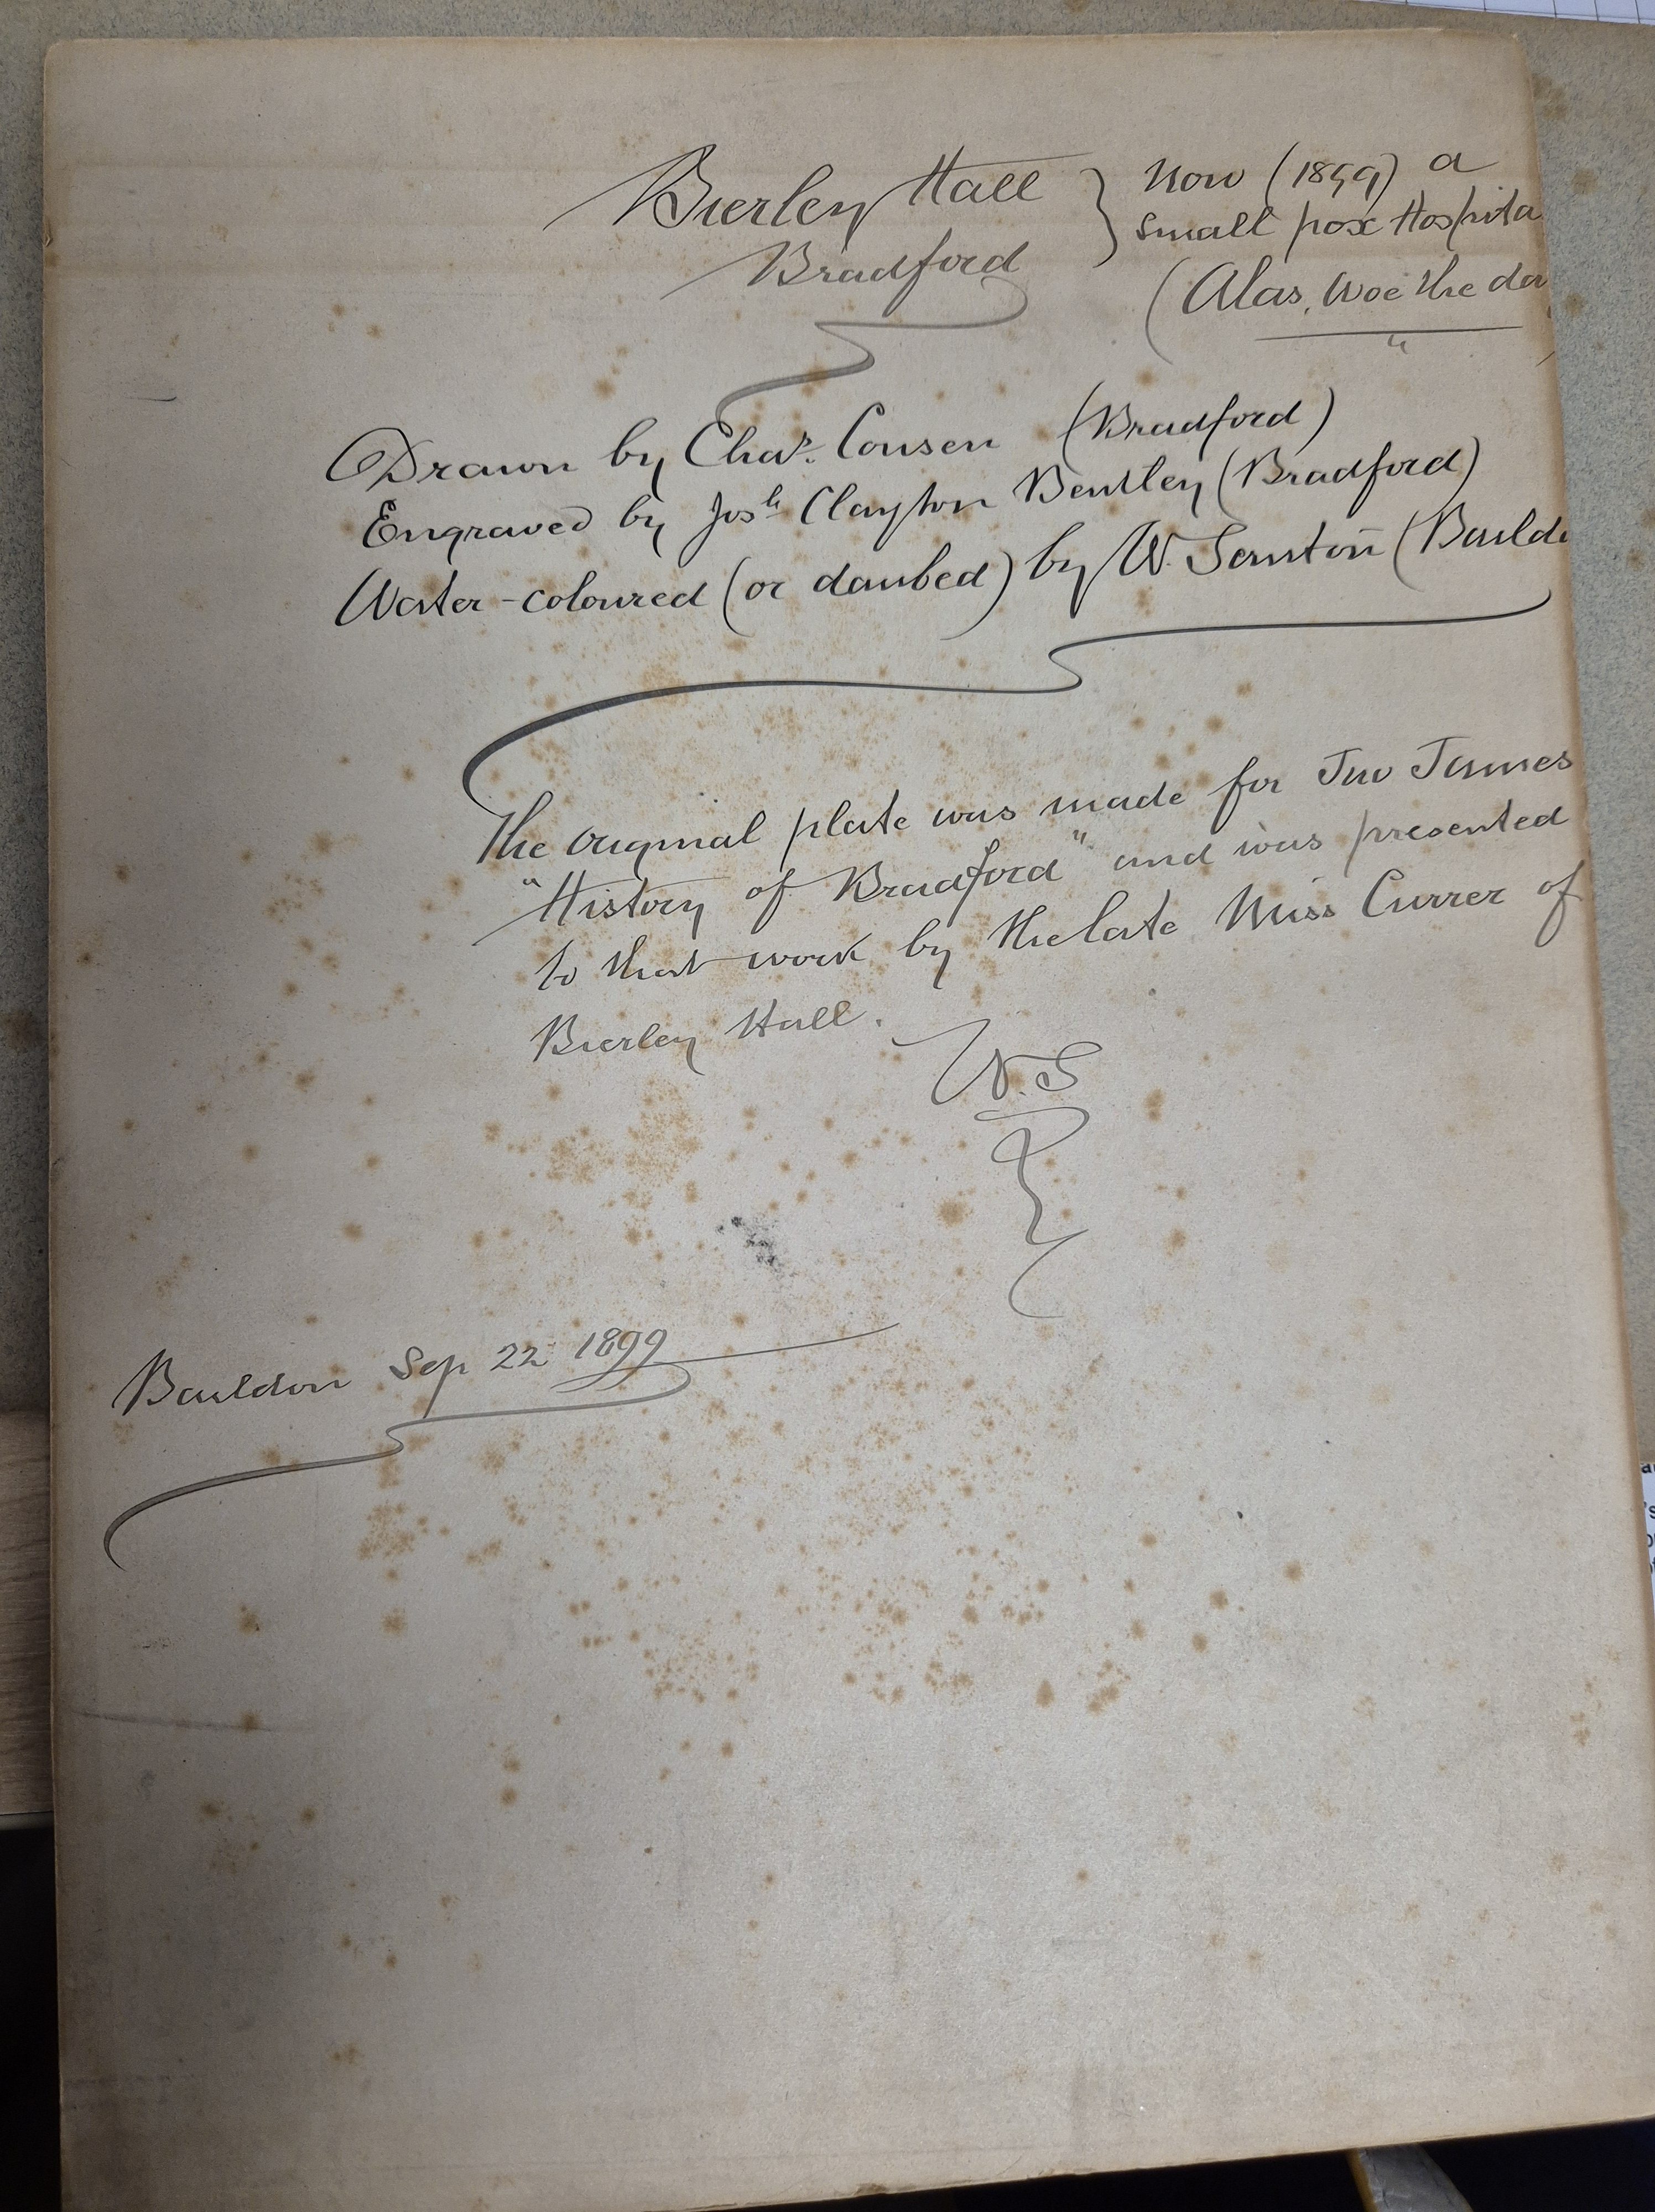 Bierley Hall } Now (1899) a
Bradford } Small pox Hospita
(Alas, Woe the da
Drawn by Chas. Cousen (Bradford)
Engraved by Josh Clayton Bentley (Bradford)
Water-coloured (or daubed) by W. Scruton (Baild
The original plate was made for Jno James
"History of Bradford" and was presented
to that work by the late Miss Currer of
Bierley Hall.
W. S
Baildon Sep 22 1899